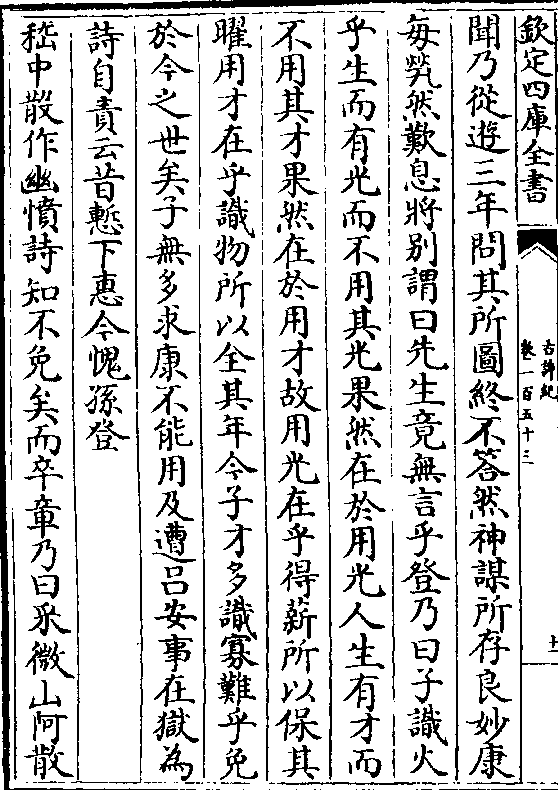 欽定四庫全書
古詩紀
卷一百五十三
十
聞乃從遊三年問其所圖終不答然神謀所存良妙康
每㷀然歎息將別謂曰先生竟無言乎登乃曰子識火
乎生而有光而不用其光果然在於用光人生有才而
不用其才果然在於用才故用光在乎得薪所以保其
曜用才在乎識物所以全其年今子才多識寡難乎免
於今之世矣子無多求康不能用及遭吕安事在獄為
詩自責云昔慙下惠今愧孫登
嵇中散作幽憤詩知不免矣而卒章乃曰采薇山阿散